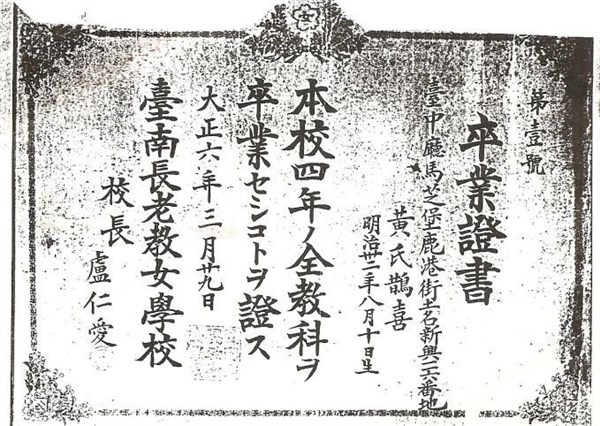 第壹號
卒業證書
臺中廳馬芝堡鹿港街土名新興二番地
黃氏鵲喜
明治卅二年八月十日生
本校四年ノ全教科ヲ
卒業セシコトヲ證ス
大正六年三月廿九日
臺南長老教女學校
校長 盧仁愛